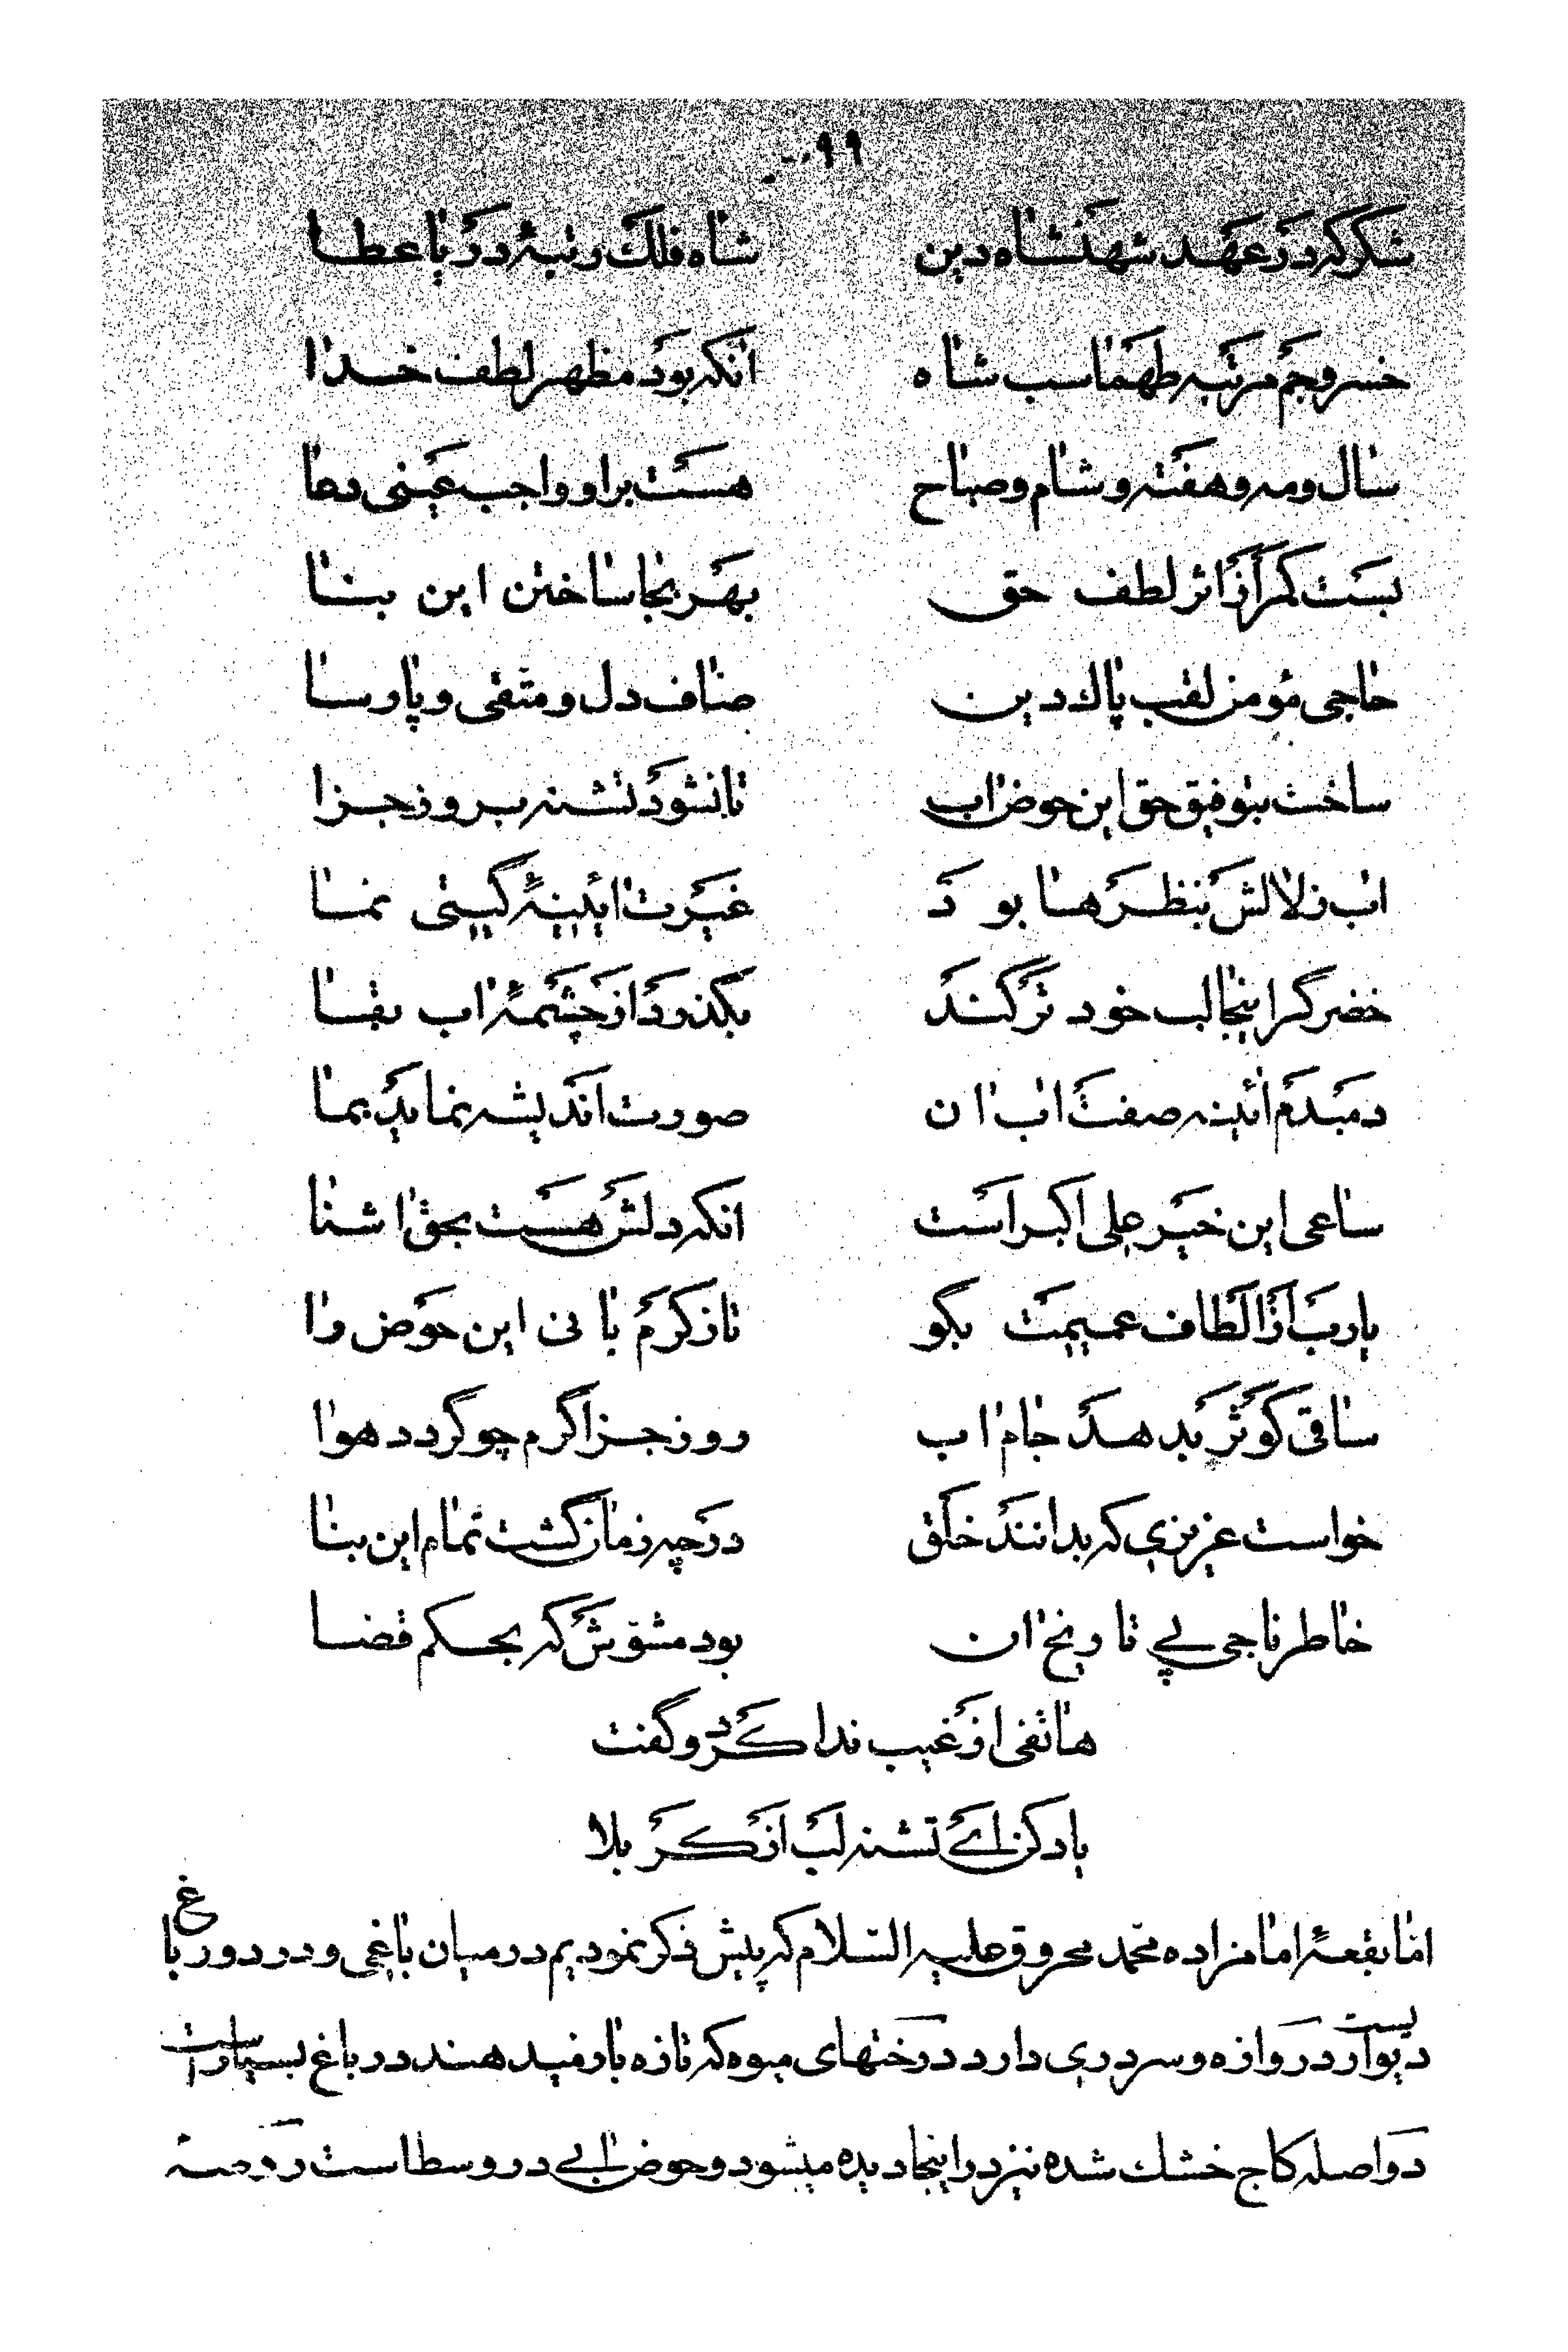 ۹۹
شکر که در عهد شهنشاه دین شاه فلک رتبهٔ دریا عطا
خسرو جم مرتبه طهماسب شاه آنکه بود مظهر لطف خدا
سال و مه و هفته و شام و صباح هست بر او واجب عینی دعا
بست کمر از اثر لطف حق بهر بجا ساختن این بنا
حاجی مؤمن لقب پاک دین صاف دل و متقی و پارسا
ساخت بتوفیق حق این حوض اب تا نشود تشنه بروز جزا
اب زلالش بنظرها بود غیرت ایٔینهٔ گیتی نما
خضر گر اینجا لب خود تر کند بگذرد از چشمهٔ اب بقا
دمبدم ائینه صفت اب ان صورت اندیشه نماید بما
ساعی این خیر علی اکبر است انکه دلش هست بحق اشنا
یارب از الطاف عمیمت بگو تا ز کرم بانی این حوض را
ساقی کوثر بدهد جام اب روز جزا گرم چو گردد هوا
خواست عزیزی که بدانند خلق در چه زمان گشت تمام این بنا
خاطر ناجی پی تاریخ ان بود مشوّش که بحکم قضا
هاتفی از غیب ندا کرد و گفت
یاد کن ای تشنه لب از کربلا
امّا بقعهٔ امامزاده محمّد محروق علیه السّلام که پیش ذکر نمودیم در میان باغی و در دور باغ
دیواریست دروازه و سردری دارد درختهای میوه که تازه بار میدهند در باغ بسیار است
دو اصله کاج خشک شده نیز در اینجا دیده میشود و حوض ابی در وسط است روضهٔ